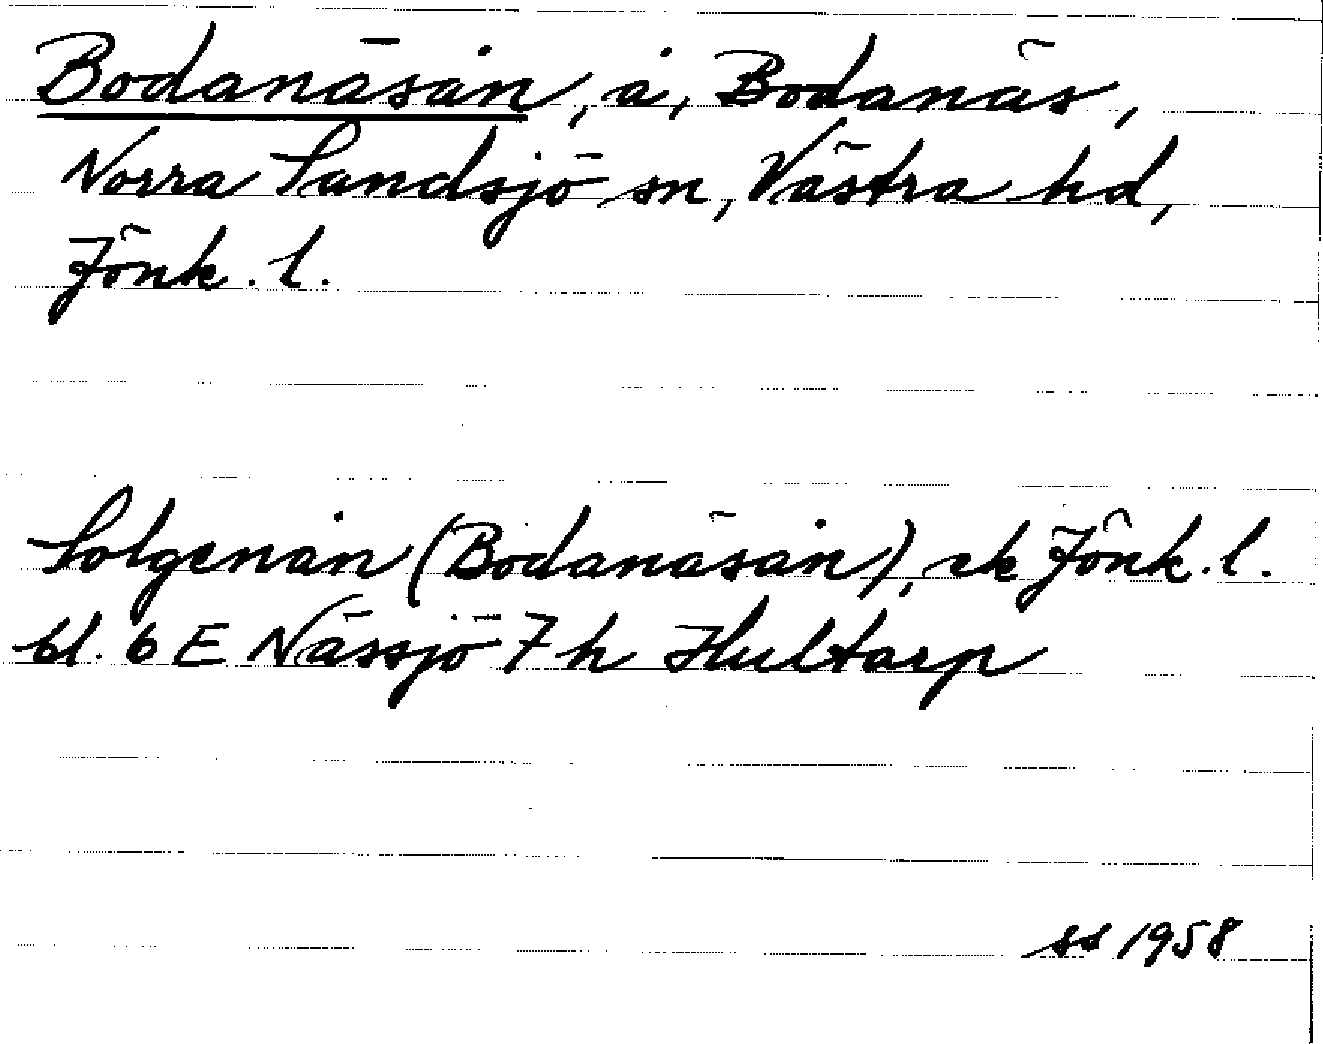 Bodanäsån, å, Bodanäs,
Norra Sandsjö sn, Västra hd,
Jönk. l.
Solgenån (Bodanäsån), ek Jönk. l.
bl. 6 E Nässjö 7 h Hultarp
ss 1958